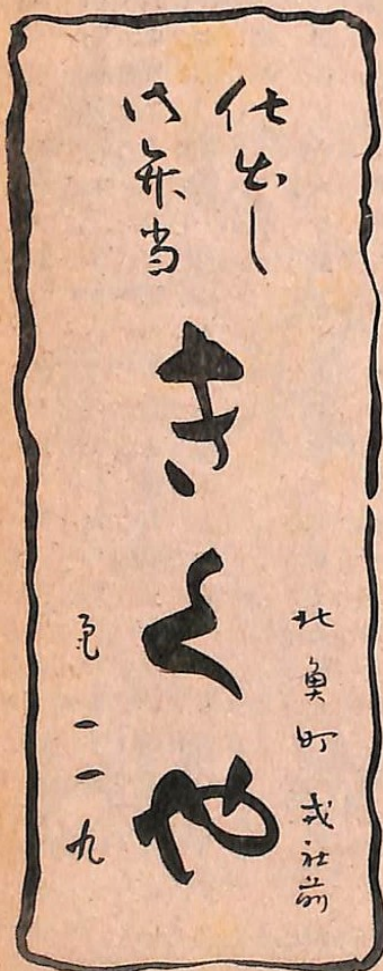 仕出し
御弁当
きくや
北魚町戎社前
電一一九